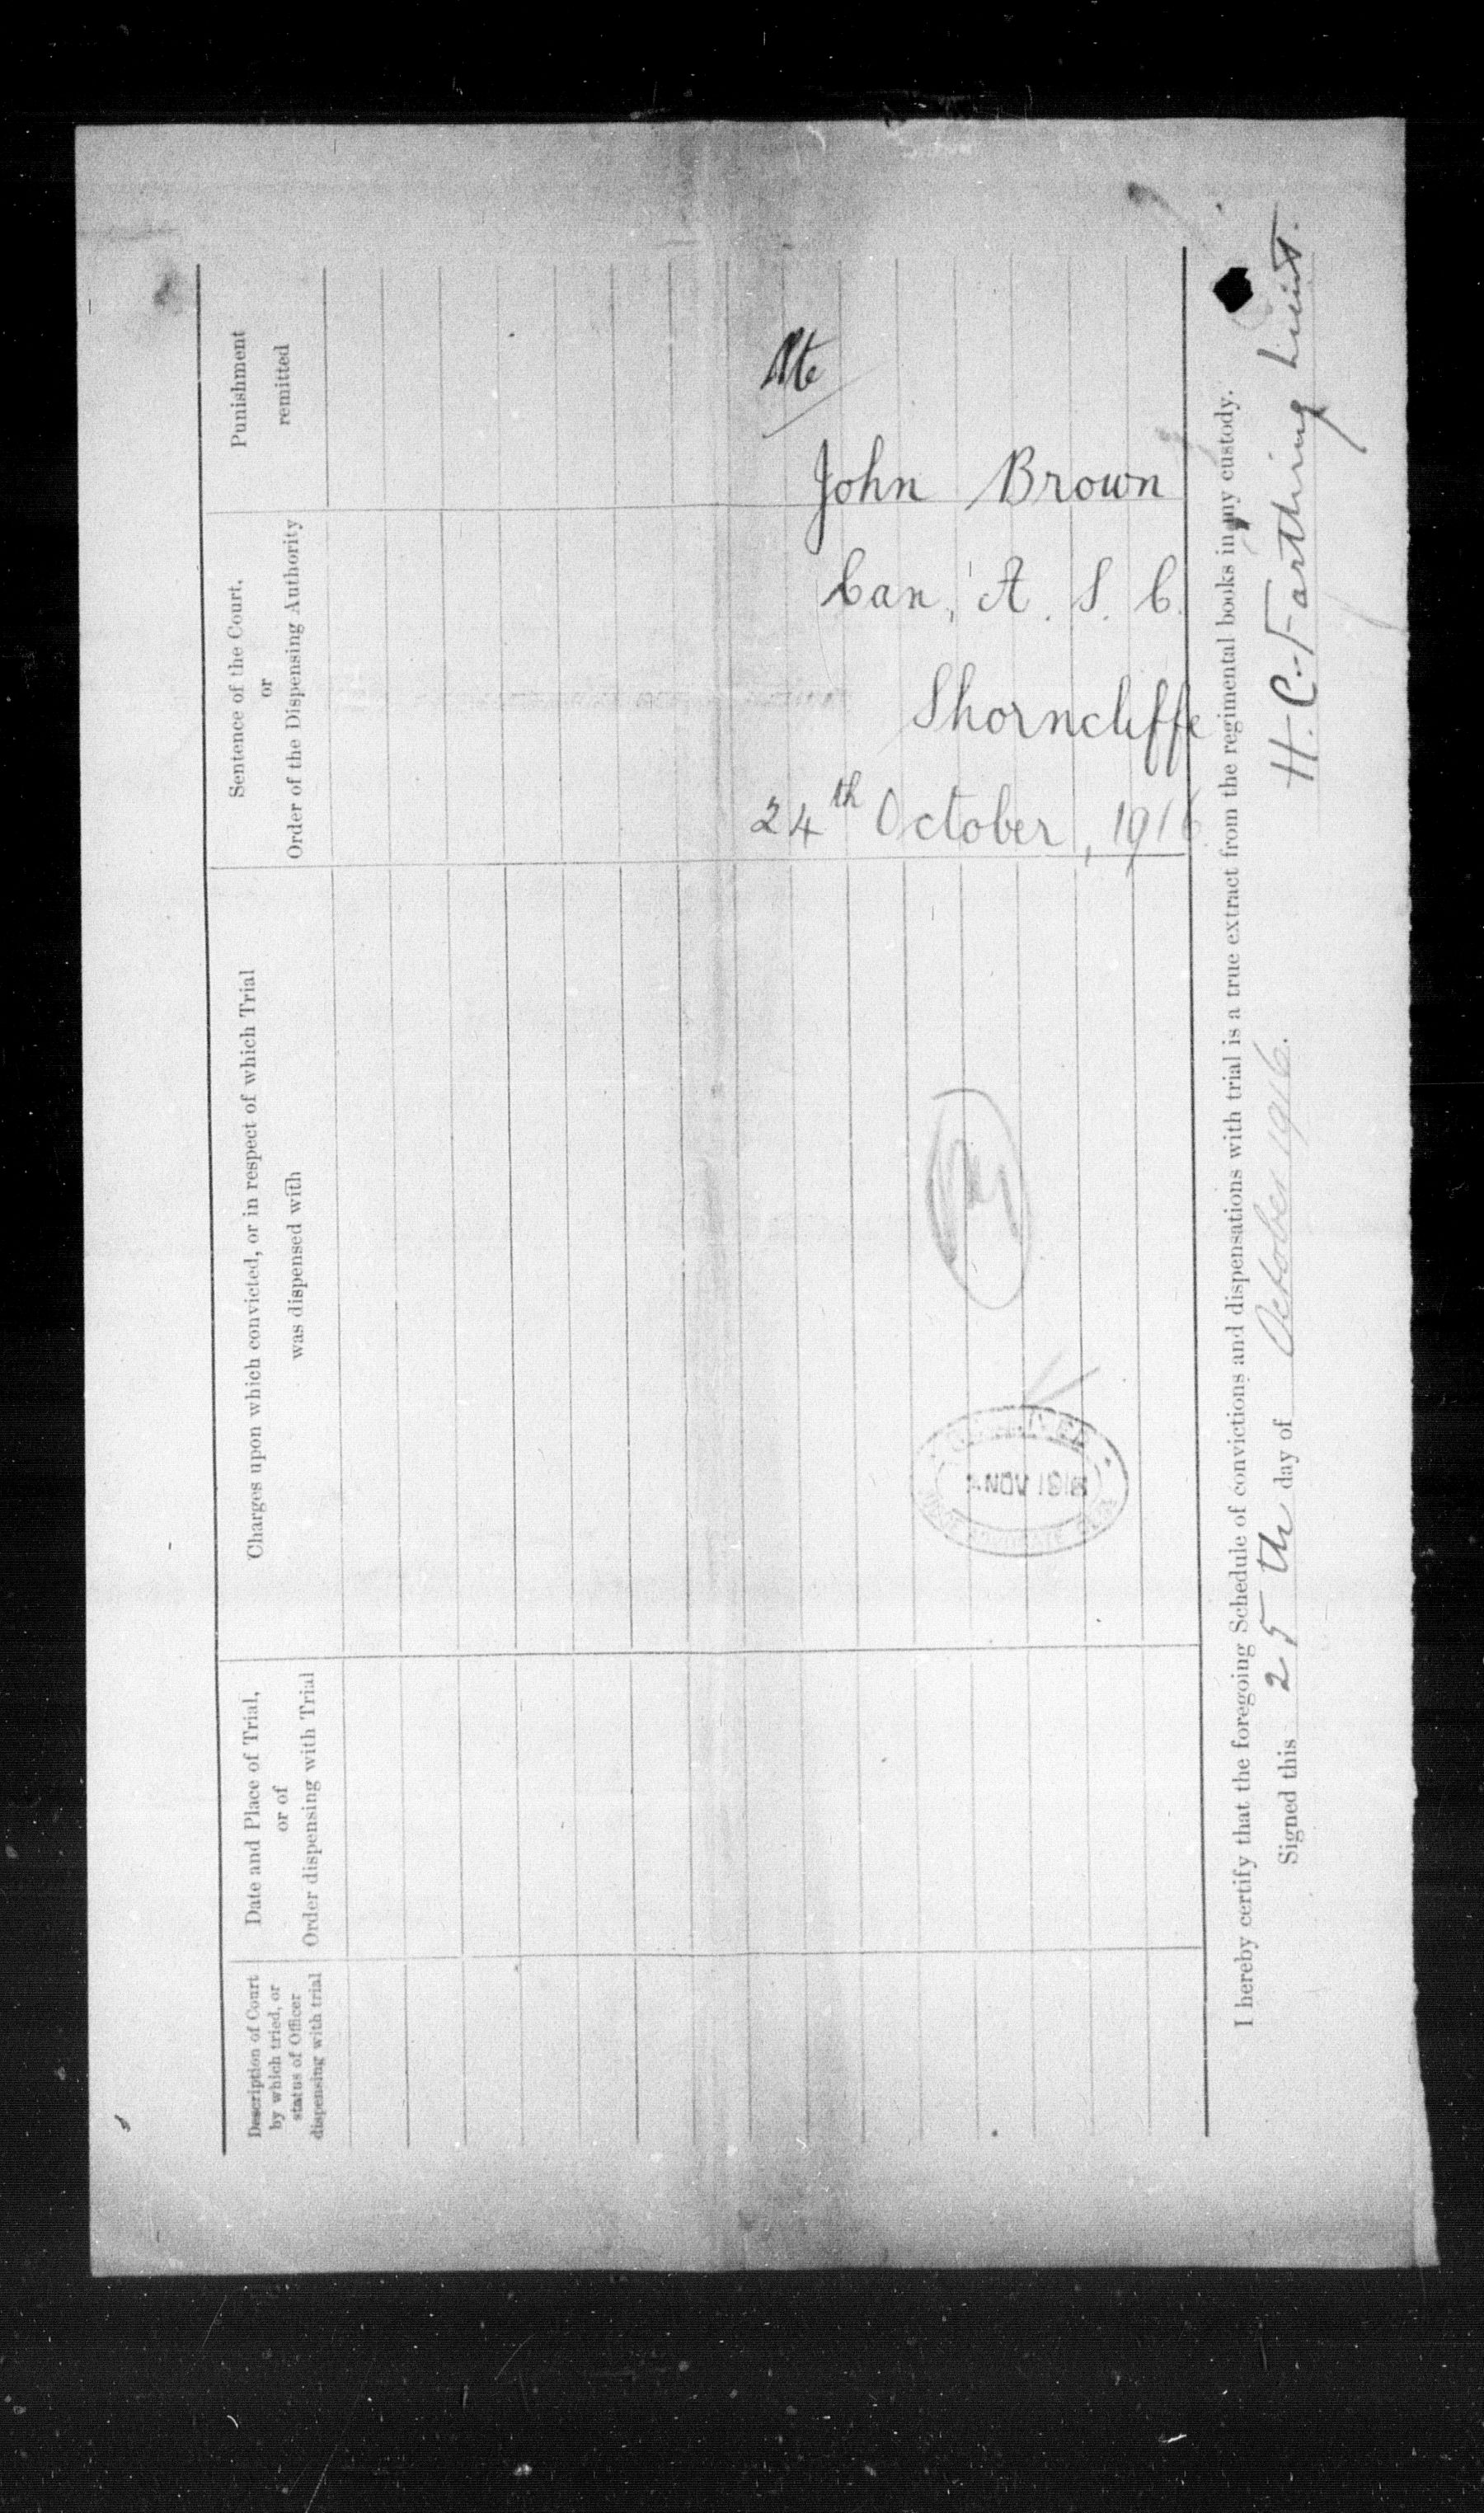 Description of Court
by which tried, or
status of Officer
dispensing with trial
Date and Place of Trial,
or of
Order dispensing with Trial
Charges upon which convicted, or in respect of which Trial
was dispensed with
Sentence of the Court,
or
Order of the Dispensing Authority
Punishment
remitted
Pte
John Brown
Can. A. S. C.
Shorncliffe
24th October, 1916
NOV 1916
I hereby certify that the foregoing Schedule of convictions and dispensations with trial is a true extract from the regimental books in my custody.
Signed this 25th day of October 1916. H. C. Farthing Lieut.